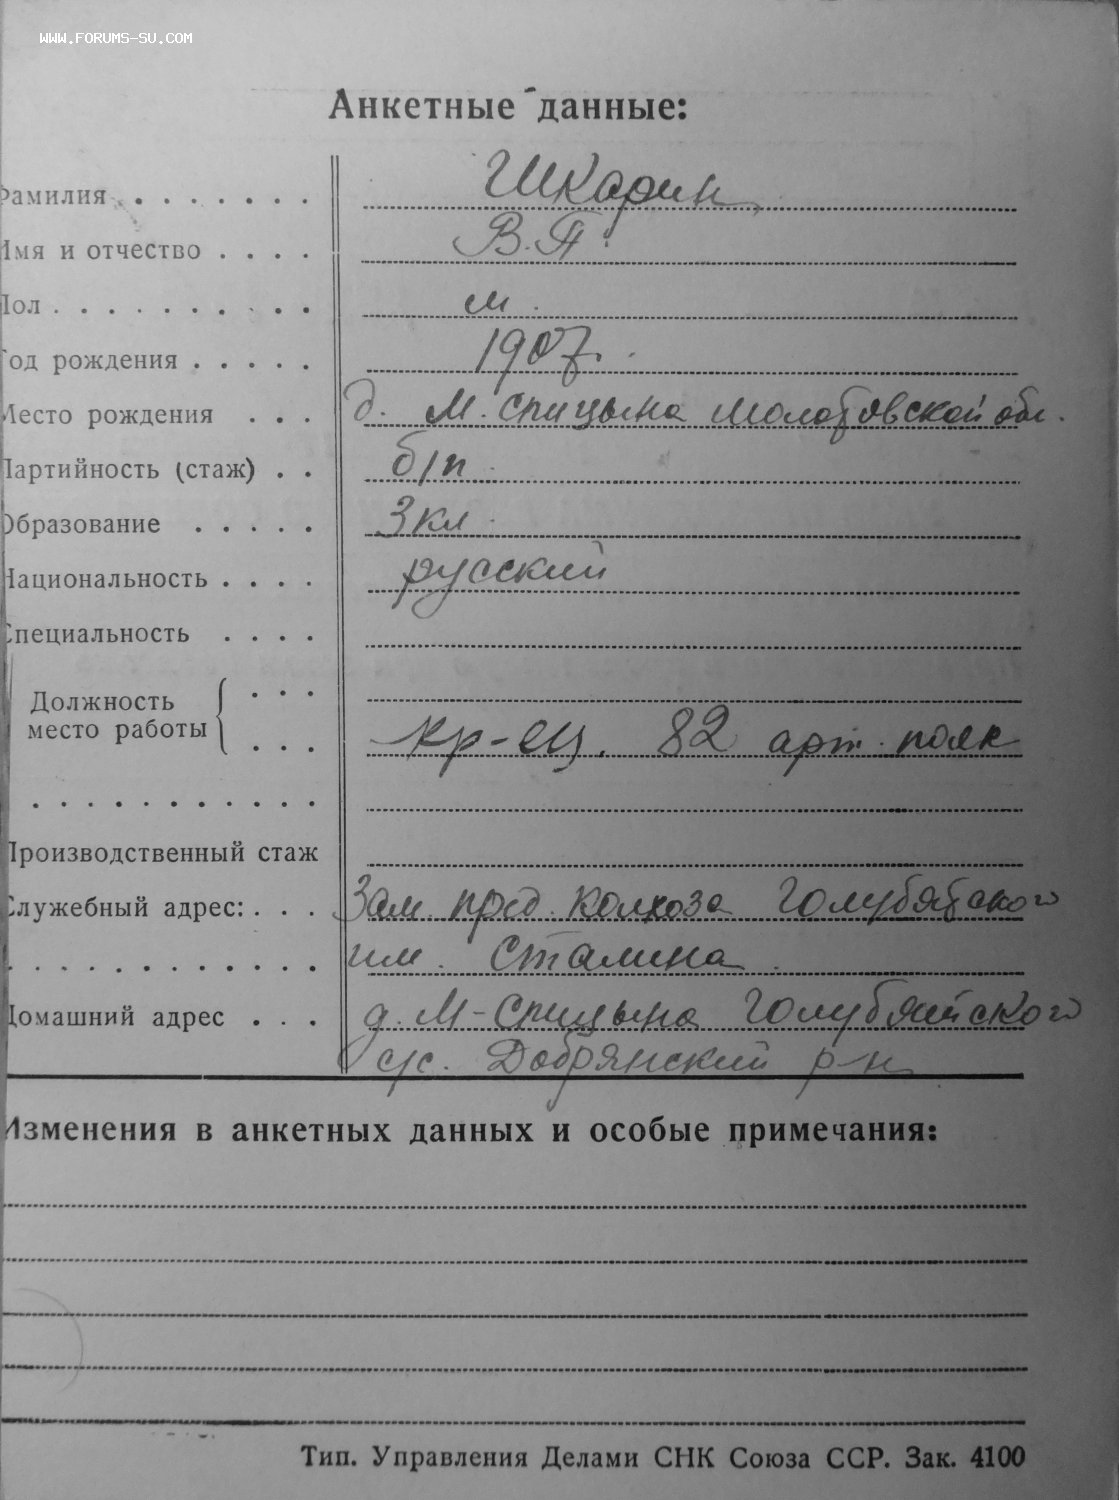 WWW.FORUMS-SU.COM
Анкетные данные:
Фамилия . . . . . . . Шкарин
Имя и отчество . . . . В.П.
Пол . . . . . . . . . . м.
Год рождения . . . . . 1907.
Место рождения . . . д. М. Спицына Молотовской обл.
Партийность (стаж) . . б/п
Образование . . . . . 3 кл.
Национальность . . . . русский
Специальность . . . .
Должность . . .
место работы . . . кр-ец. 82 арт. полк
. . . . . . . . . . .
Производственный стаж
Служебный адрес: . . . Зам. пред. Колхоза Голубятского
. . . . . . . . . . . . им. Сталина.
Домашний адрес . . . д. М-Спицына Голубятского
с/с. Добрянский р-н
Изменения в анкетных данных и особые примечания:
Тип. Управления Делами СНК Союза ССР. Зак. 4100